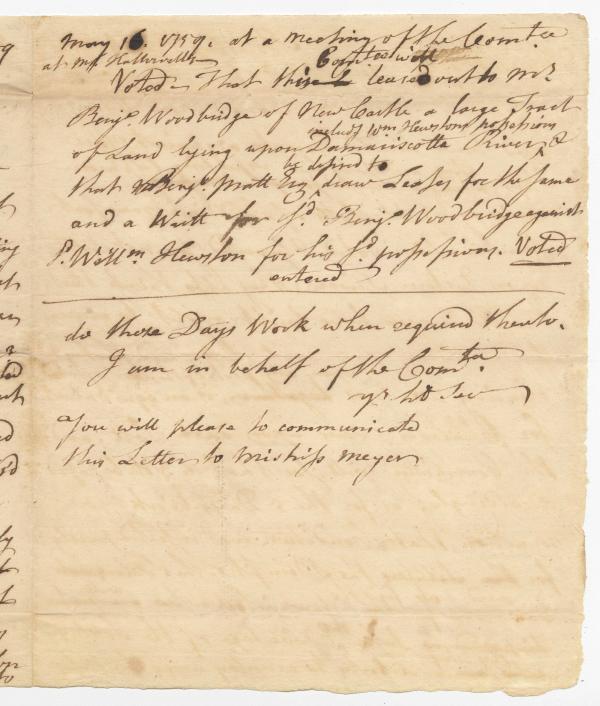 May 16. 1759. at a meeting of the Comtee
at Mr
Comtee will
Voted That there be leased out to Mr
Benja. Woodbridge of New Castle a large Tract
includg Wm Hewstons possessions
of Land lying upon Damariscotta River, &
be desired to
that Benja. Pratt Esq draw Leases for the same
and a Writt for sd. Benja. Woodbridge against
sd. Willm Hewston for his sd. possessions. Voted
entered
do those Days Work when required thereto.
I am in behalf of the Comtee
yr hb Serv
You will please to communicate
this Letter to Mistriss Meyer